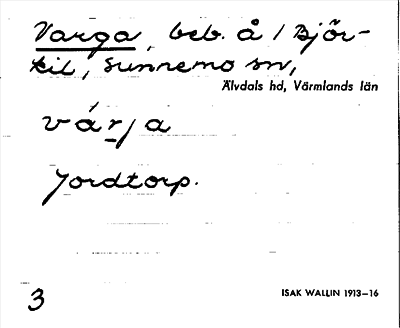 Varga, beb. å / Björ-
kil, Sunnemo sn,
Älvdals hd, Värmlands län
várja
Jordtorp.
3
ISAK WALLIN 1913–16